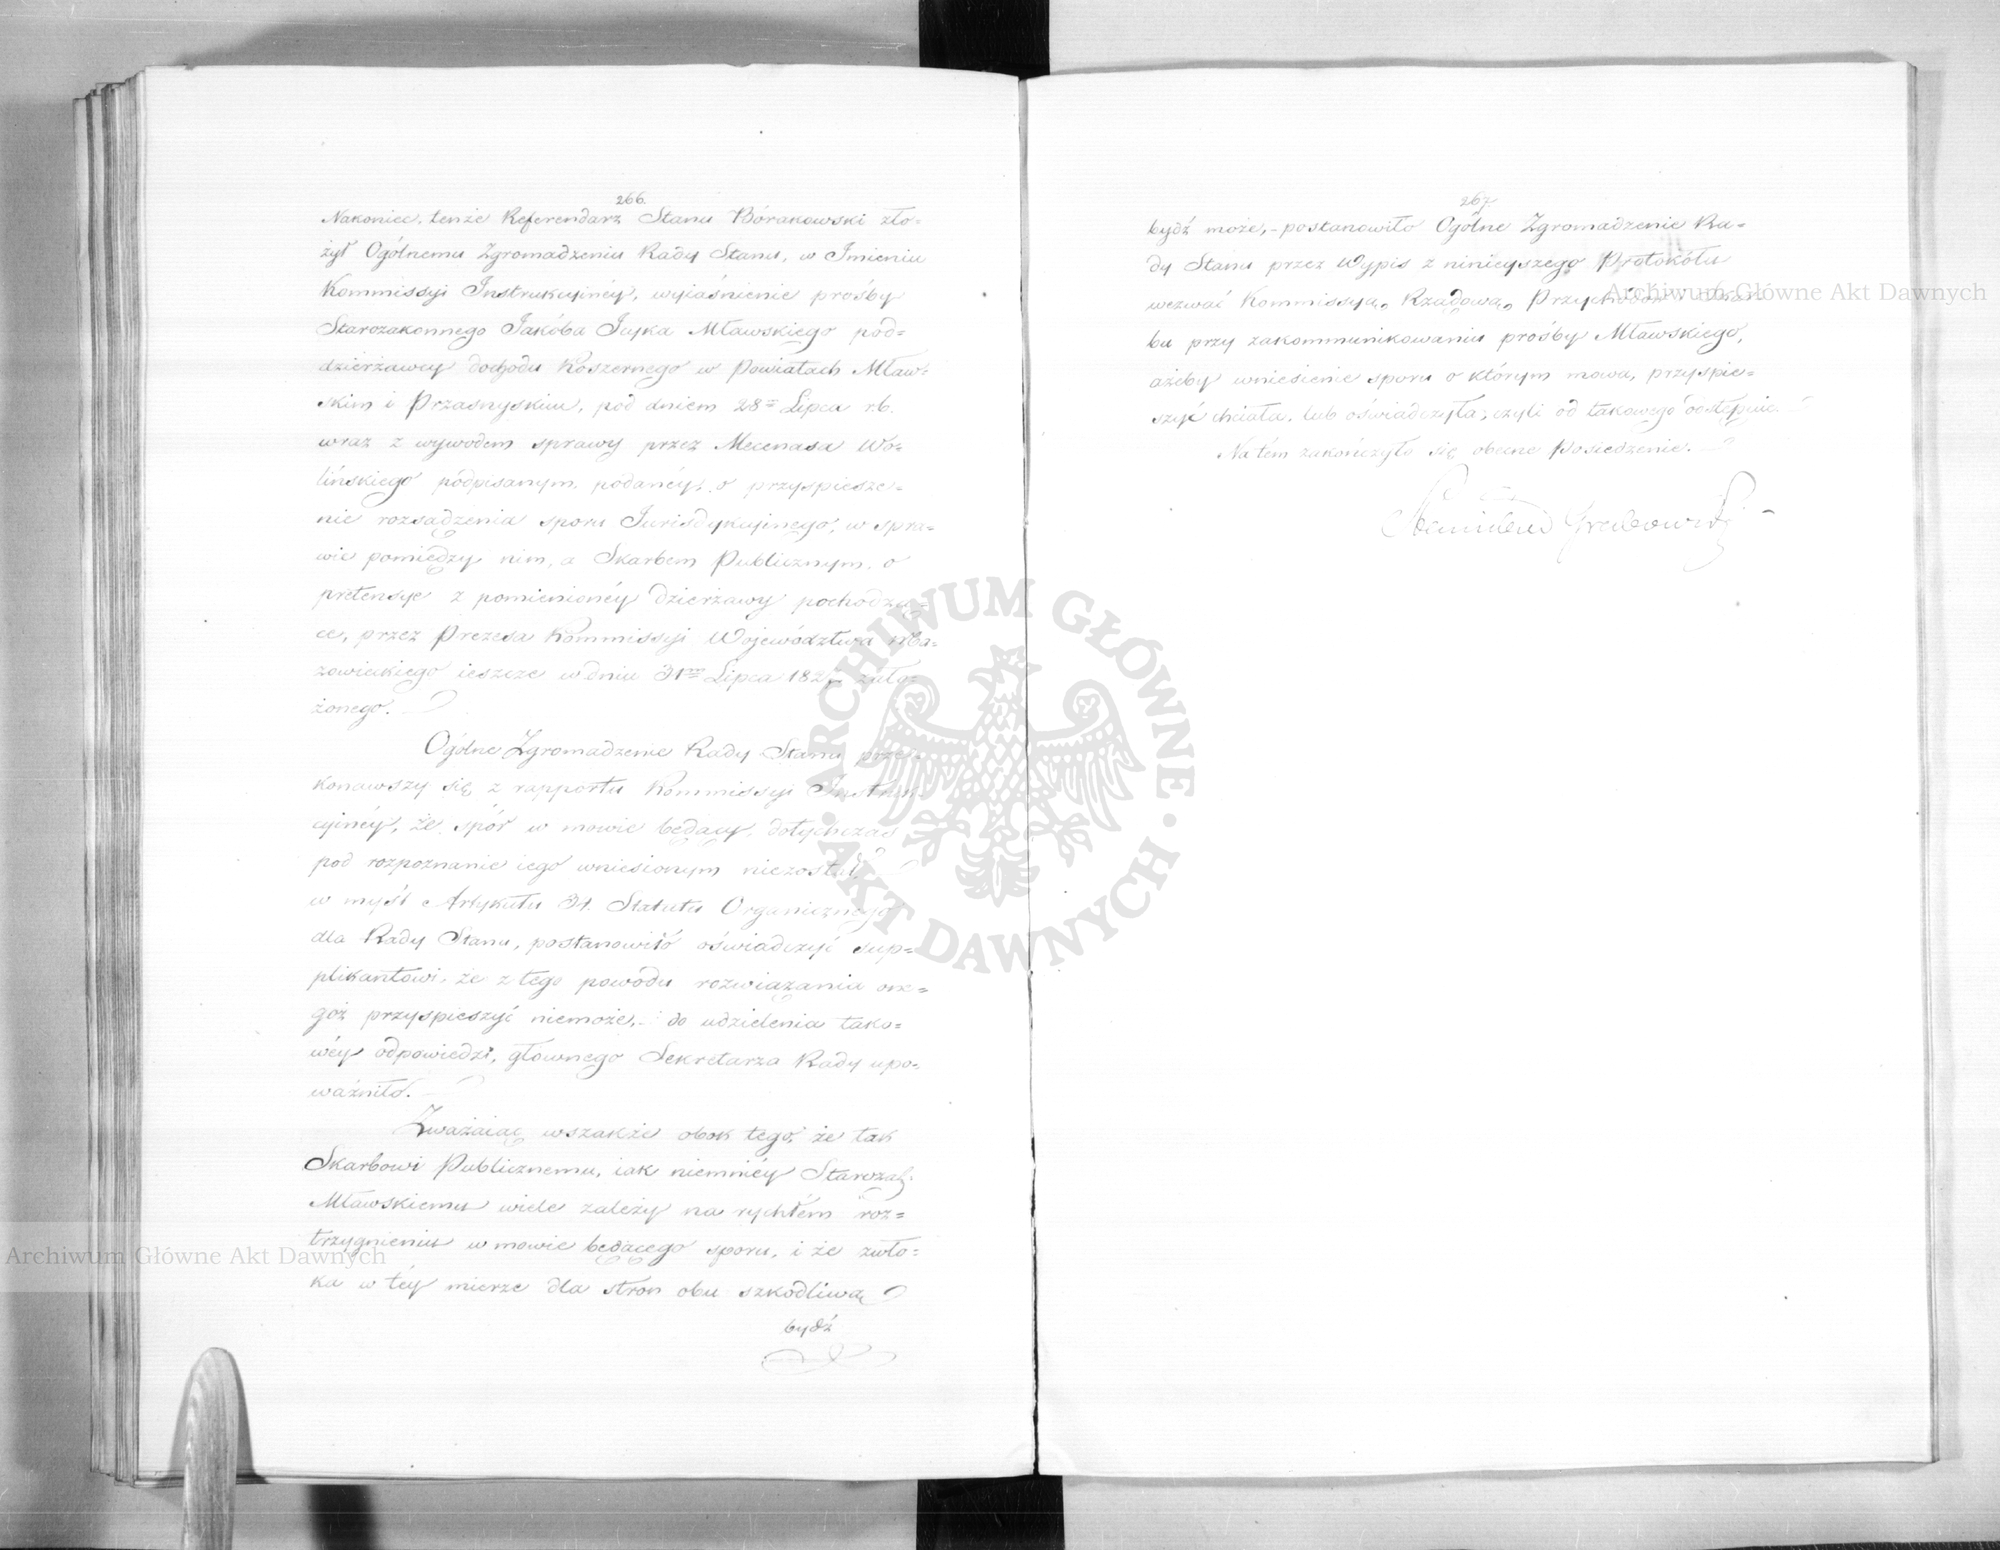 266.
Nakoniec, tenże Referendarz Stanu Bórakowski zło=
żył Ogólnemu Zgromadzeniu Rady Stanu, w Imieniu
Kommissyi Instrukcyinéy, wyiaśnienie prośby
Starozakonnego Jakóba Mławskiego pod=
dzierżawcy dochodu Koszernego w Powiatach Mław=
skim i Przasnyskim, pod dniem 28 Lipca r.b.
wraz z wywodem sprawy przez Mecenasa Wo=
lińskiego podpisanym, podanéy, o przyspiesze=
nie rozsądzenia sporu Jurisdykcyinego, w spra=
wie pomiędzy nim, a Skarbem Publicznym, o
pretensye z pomienionéy dzierżawy pochodzą=
ce, przez Prezesa Kommissyi Województwa Ma=
zowieckiego ieszcze w dniu 31 Lipca zało=
żonego.
Ogólne Zgromadzenie Rady Stanu prze=
konawszy się z rapportu Kommissyi Instruk=
cyinéy, że spór w mowie będący, dotychczas
pod rozpoznanie iego wniesionym niezostał,
w myśl Artykułu 31. Statutu Organicznego
dla Rady Stanu, postanowiło oświadczyć sup=
plikantowi, że z tego powodu rozwiązania one=
góż przyspieszyć niemoże,- do udzielenia tako=
wéy odpowiedzi, głownego Sekretarza Rady upo=
ważniło.
Zważaiąc wszakże obok tego, że tak
Skarbowi Publicznemu, iak niemniéy Starozak:
Mławskiemu wiele zależy na rychłem roz=
trzygnieniu w mowie będącego sporu, i że zwło=
ka w téy mierze dla stron obu szkodliwą
bydź
267
bydź może,- postanowiło Ogólne Zgromadzenie Ra=
dy Stanu przez Wypis z ninieyszego Protokółu
wezwać Kommissyą Rządową Przychodów i Skar=
bu przy zakommunikowaniu prośby Mławskiego,
ażeby wniesienie sporu o którym mowa, przyspie=
szyć chciała, lub oświadczyła, czyli od takowego odstępuie.
Na tém zakończyło się obecne Posiedzenie.
Stanisław Grabowski
Archiwum Główne Akt Dawnych
Archiwum Główne Akt Dawnych
ARCHIWUM GŁÓWNE · AKT DAWNYCH ·